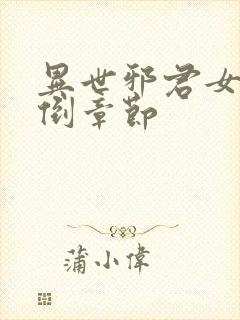 異世邪君女
倒章節
蒲小偉